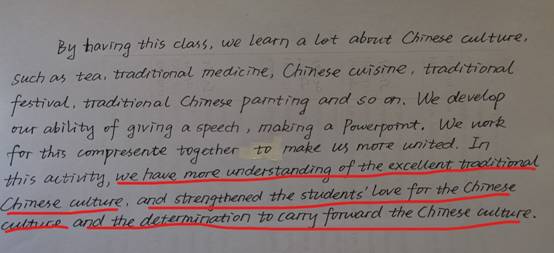 By having this class, we learn a lot about Chinese culture,
such as tea, traditional medicine, Chinese cuisine, traditional
festival, traditional Chinese painting and so on. We develop
our ability of giving a speech, making a Powerpoint. We work
for this compresente together to make us more united. In
this activity, we have more understanding of the excellent traditional
Chinese culture, and strengthened the students' love for the Chinese
culture and the determination to carry forward the Chinese culture.